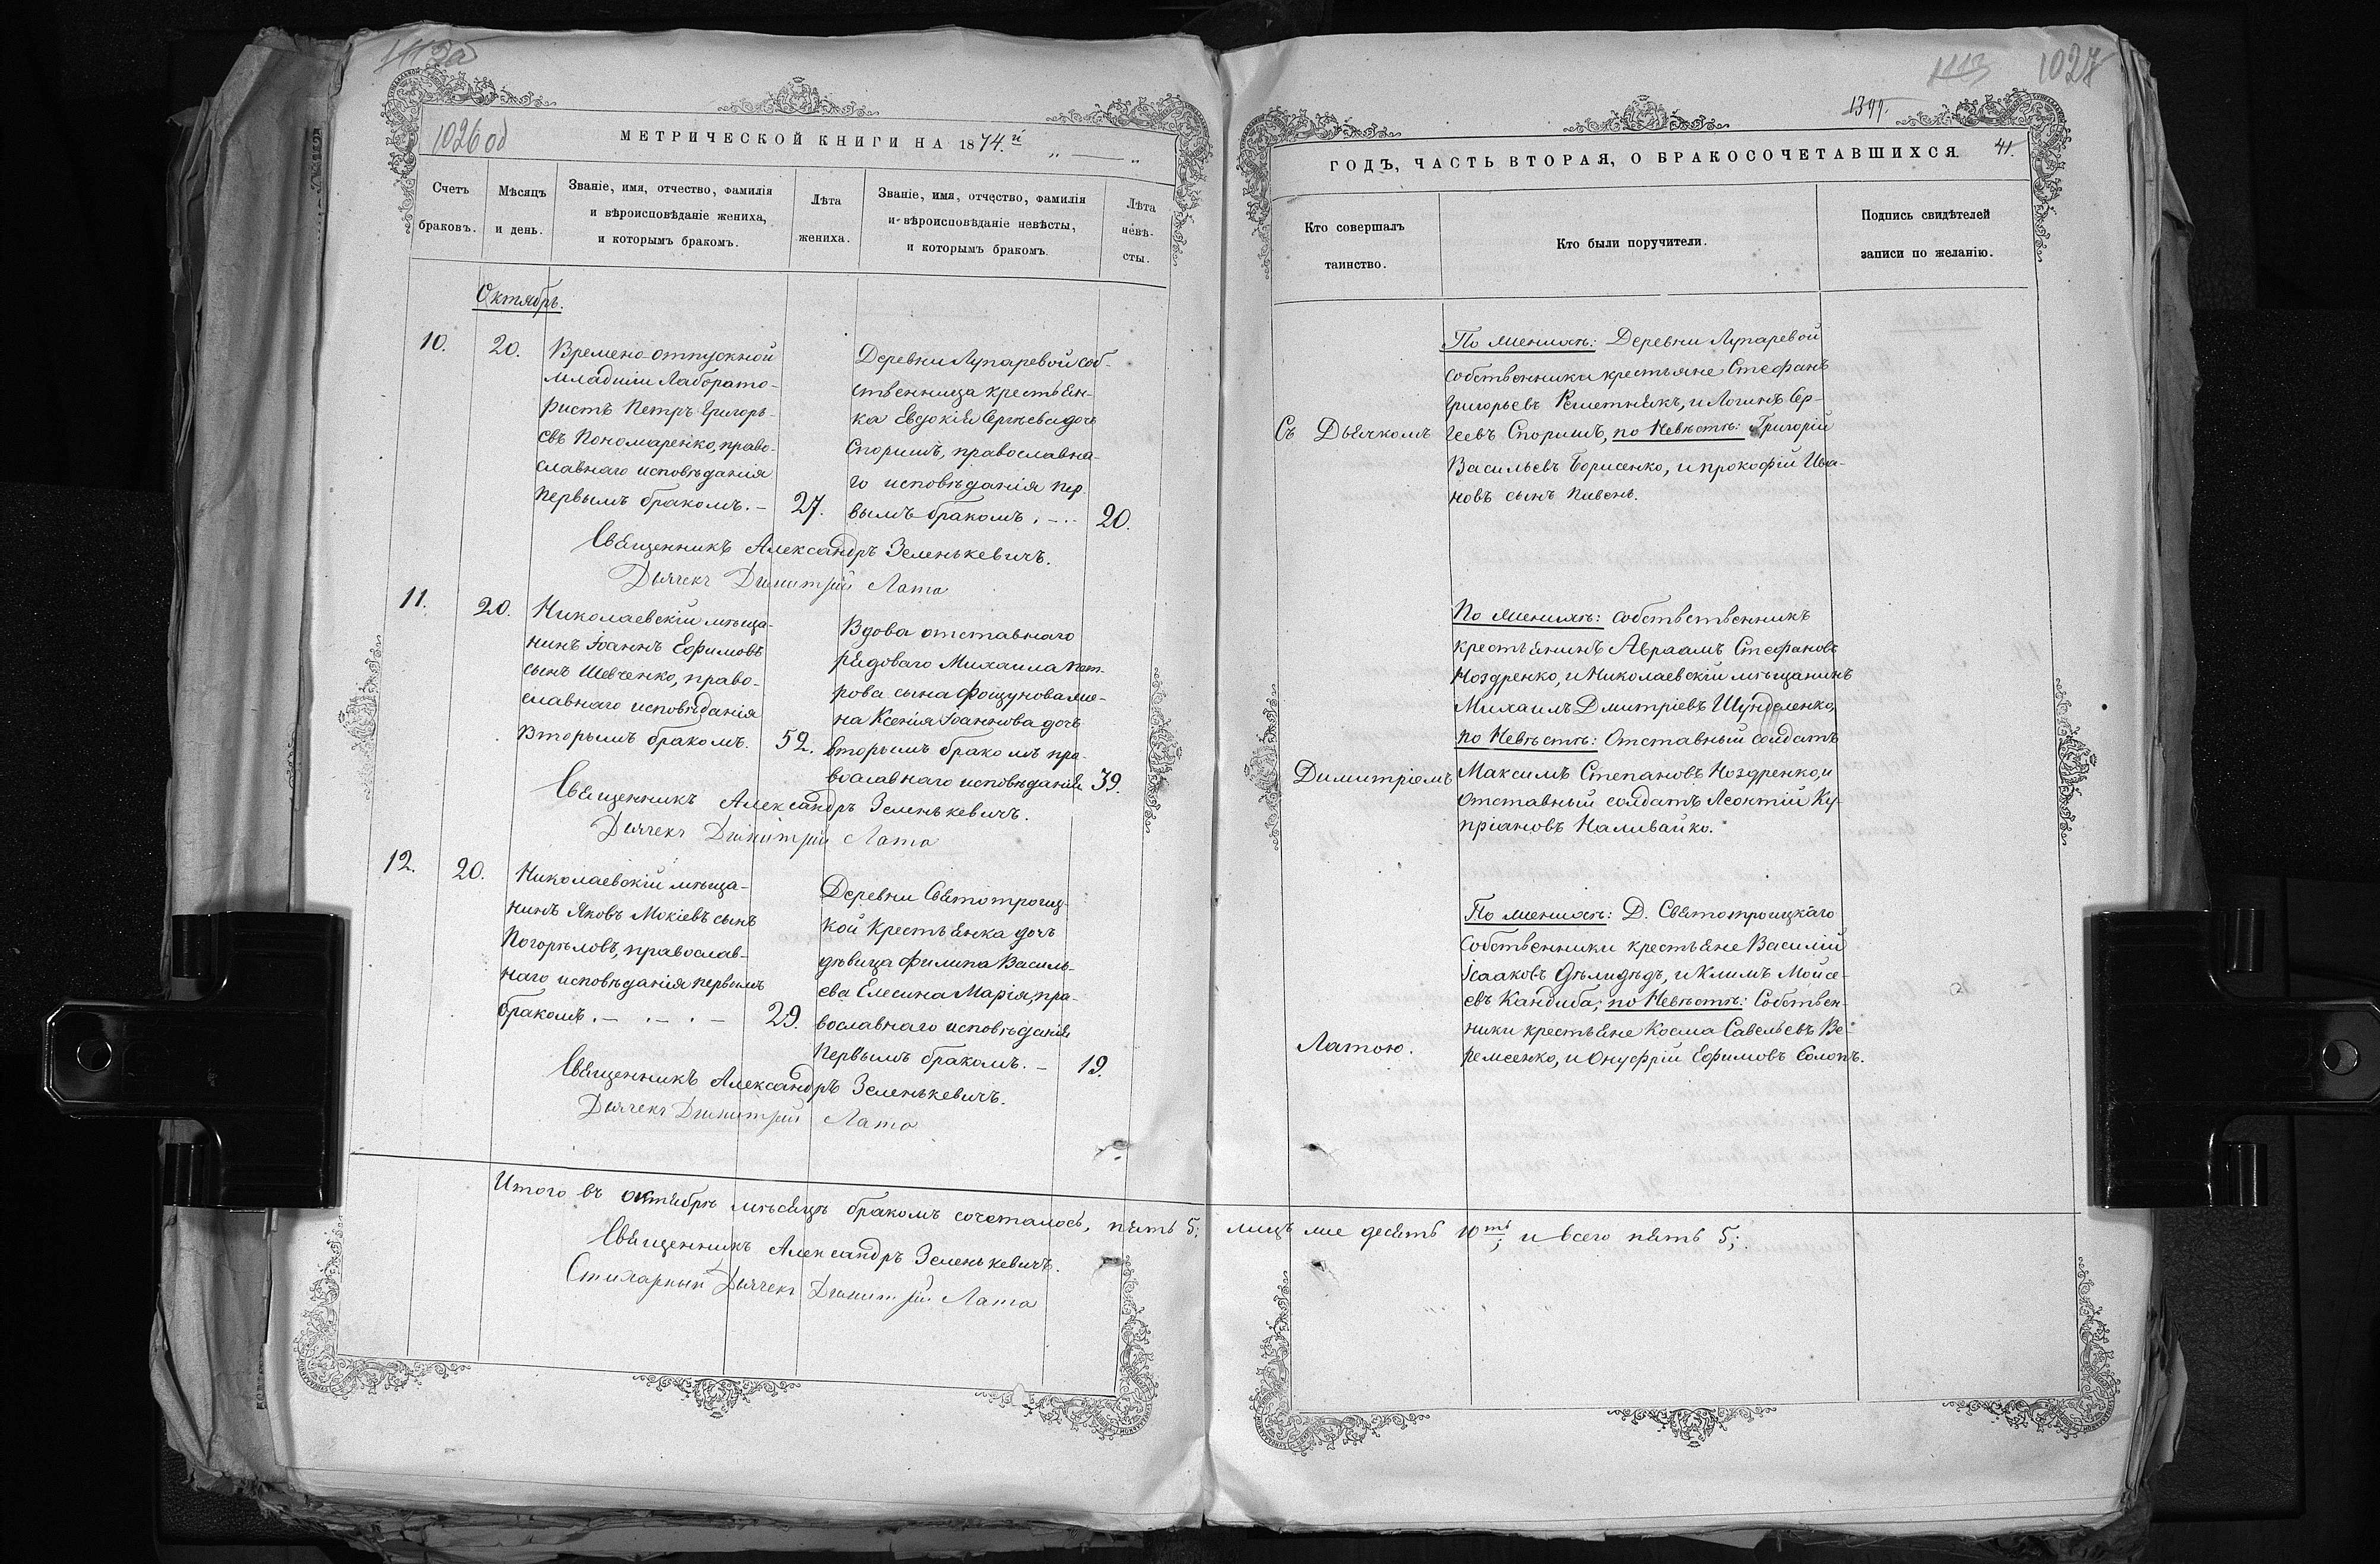 1026 об
МЕТРИЧЕСКОЙ КНИГИ НА 1874.й „ — „
Счетъ браковъ.
Мѣсяцъ и день.
Званіе, имя, отчество, фамилія
и вѣроисповѣданіе жениха,
и которымъ бракомъ.
Лѣта
жениха.
Званіе, имя, отчество, фамилія
и вѣроисповѣданіе невѣсты,
и которымъ бракомъ.
Лѣта
невѣ-
сты.
Октябрь.
10.
20.
Времено отпускной
младшій Лаборато-
ристъ Петръ Григорь-
евъ Пономаренко, право-
славнаго исповѣданія
первымъ бракомъ. –
27.
Деревни Лупаревой соб-
ственница крестьян-
ка Евдокія Сергѣева дочь
Споришъ, православна-
го исповѣданія пер-
вымъ бракомъ. –
20.
Священникъ Александръ Зеленькевичъ.
Дьячекъ Димитрій Лата
11.
20.
Николаевскій мѣща-
нинъ Іоаннъ Ефимовъ
сынъ Шевченко, право-
славнаго исповѣданія
вторымъ бракомъ.
52.
Вдова отставнаго
рядоваго Михаила Пет-
рова сына Фощунова же-
на Ксенія Іоаннова дочь
вторымъ бракомъ пра-
вославнаго исповѣданія
39.
Священникъ Александръ Зеленькевичъ.
Дьячекъ Димитрій Лата
12.
20.
Николаевскій мѣща-
нинъ Яковъ Мокіевъ сынъ
Погорѣловъ, православ-
наго исповѣданія первымъ
бракомъ. – . – . –
29.
Деревни Святотроиц-
кой Крестьянка дочь
дѣвица Филипа Василь-
ева Елесина Марія, пра-
вославнаго исповѣданія
первымъ бракомъ. –
19.
Священникъ Александръ Зеленькевичъ.
Дьячекъ Димитрій Лата
Итого въ октябрѣ мѣсяцѣ бракомъ сочеталось, пять 5; лицъ же десять 10ть; и всего пять 5;
Священникъ Александръ Зеленькевичъ.
Стихарный Дьячекъ Димитрій Лата
1113
1027
1399.
ГОДЪ, ЧАСТЬ ВТОРАЯ, О БРАКОСОЧЕТАВШИХСЯ.
41.
Кто совершалъ
таинство.
Кто были поручители.
Подпись свидѣтелей
записи по желанію.
Съ Дьячкомъ
По женихѣ: Деревни Лупаревой
собственники крестьяне Стефанъ
Григорьевъ Решетнякъ, и Логинъ Сер-
геевъ Споришъ, по Невѣстѣ: Григорій
Васильевъ Борисенко, и Прокофій Ива-
новъ сынъ Пивень.
Димитріемъ
По женихѣ: собствственникъ
крестьянинъ Авраамъ Стефановъ
Ноздренко, и Николаевскій мѣщанинъ
Михаилъ Дмитріевъ Шунделенко,
по Невѣстѣ: Отставный солдатъ
Максимъ Степановъ Ноздренко, и
отставный солдатъ Леонтій Ку-
пріановъ Наливайко.
Латою.
По женихѣ: Д. Святотроицкаго
Собственники крестьяне Василій
Исааковъ Дѣлидѣдъ, и Климъ Мойсе-
евъ Кандиба; по Невѣстѣ: Собствен-
ники крестьяне Косма Савельевъ Ве-
ремеенко, и Онуфрій Ефимовъ Солопъ.